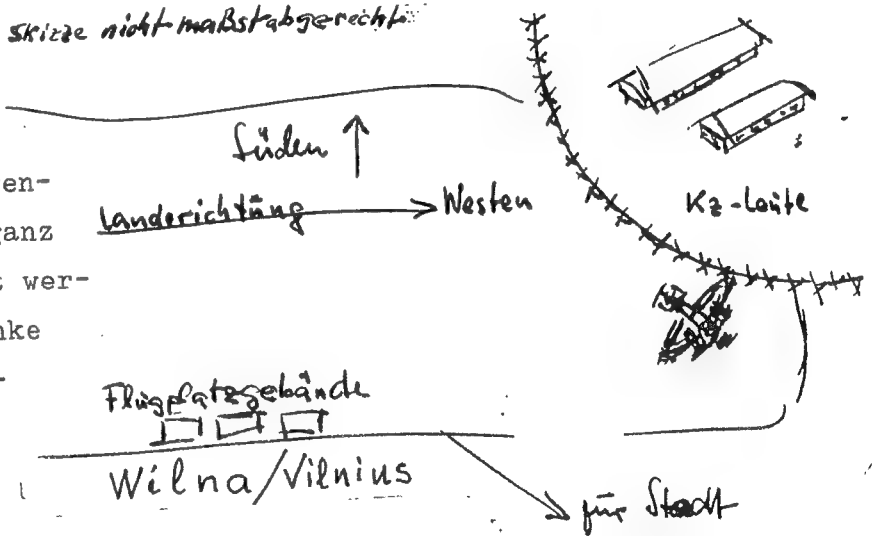 Skizze nicht maßstabgerecht
Süden
en-
ganz
Landerichtüng
Westen
Kz-Leute
t wer-
nke
-
Flugplatzgebäude
Wilna/Vilnius
zur Stadt